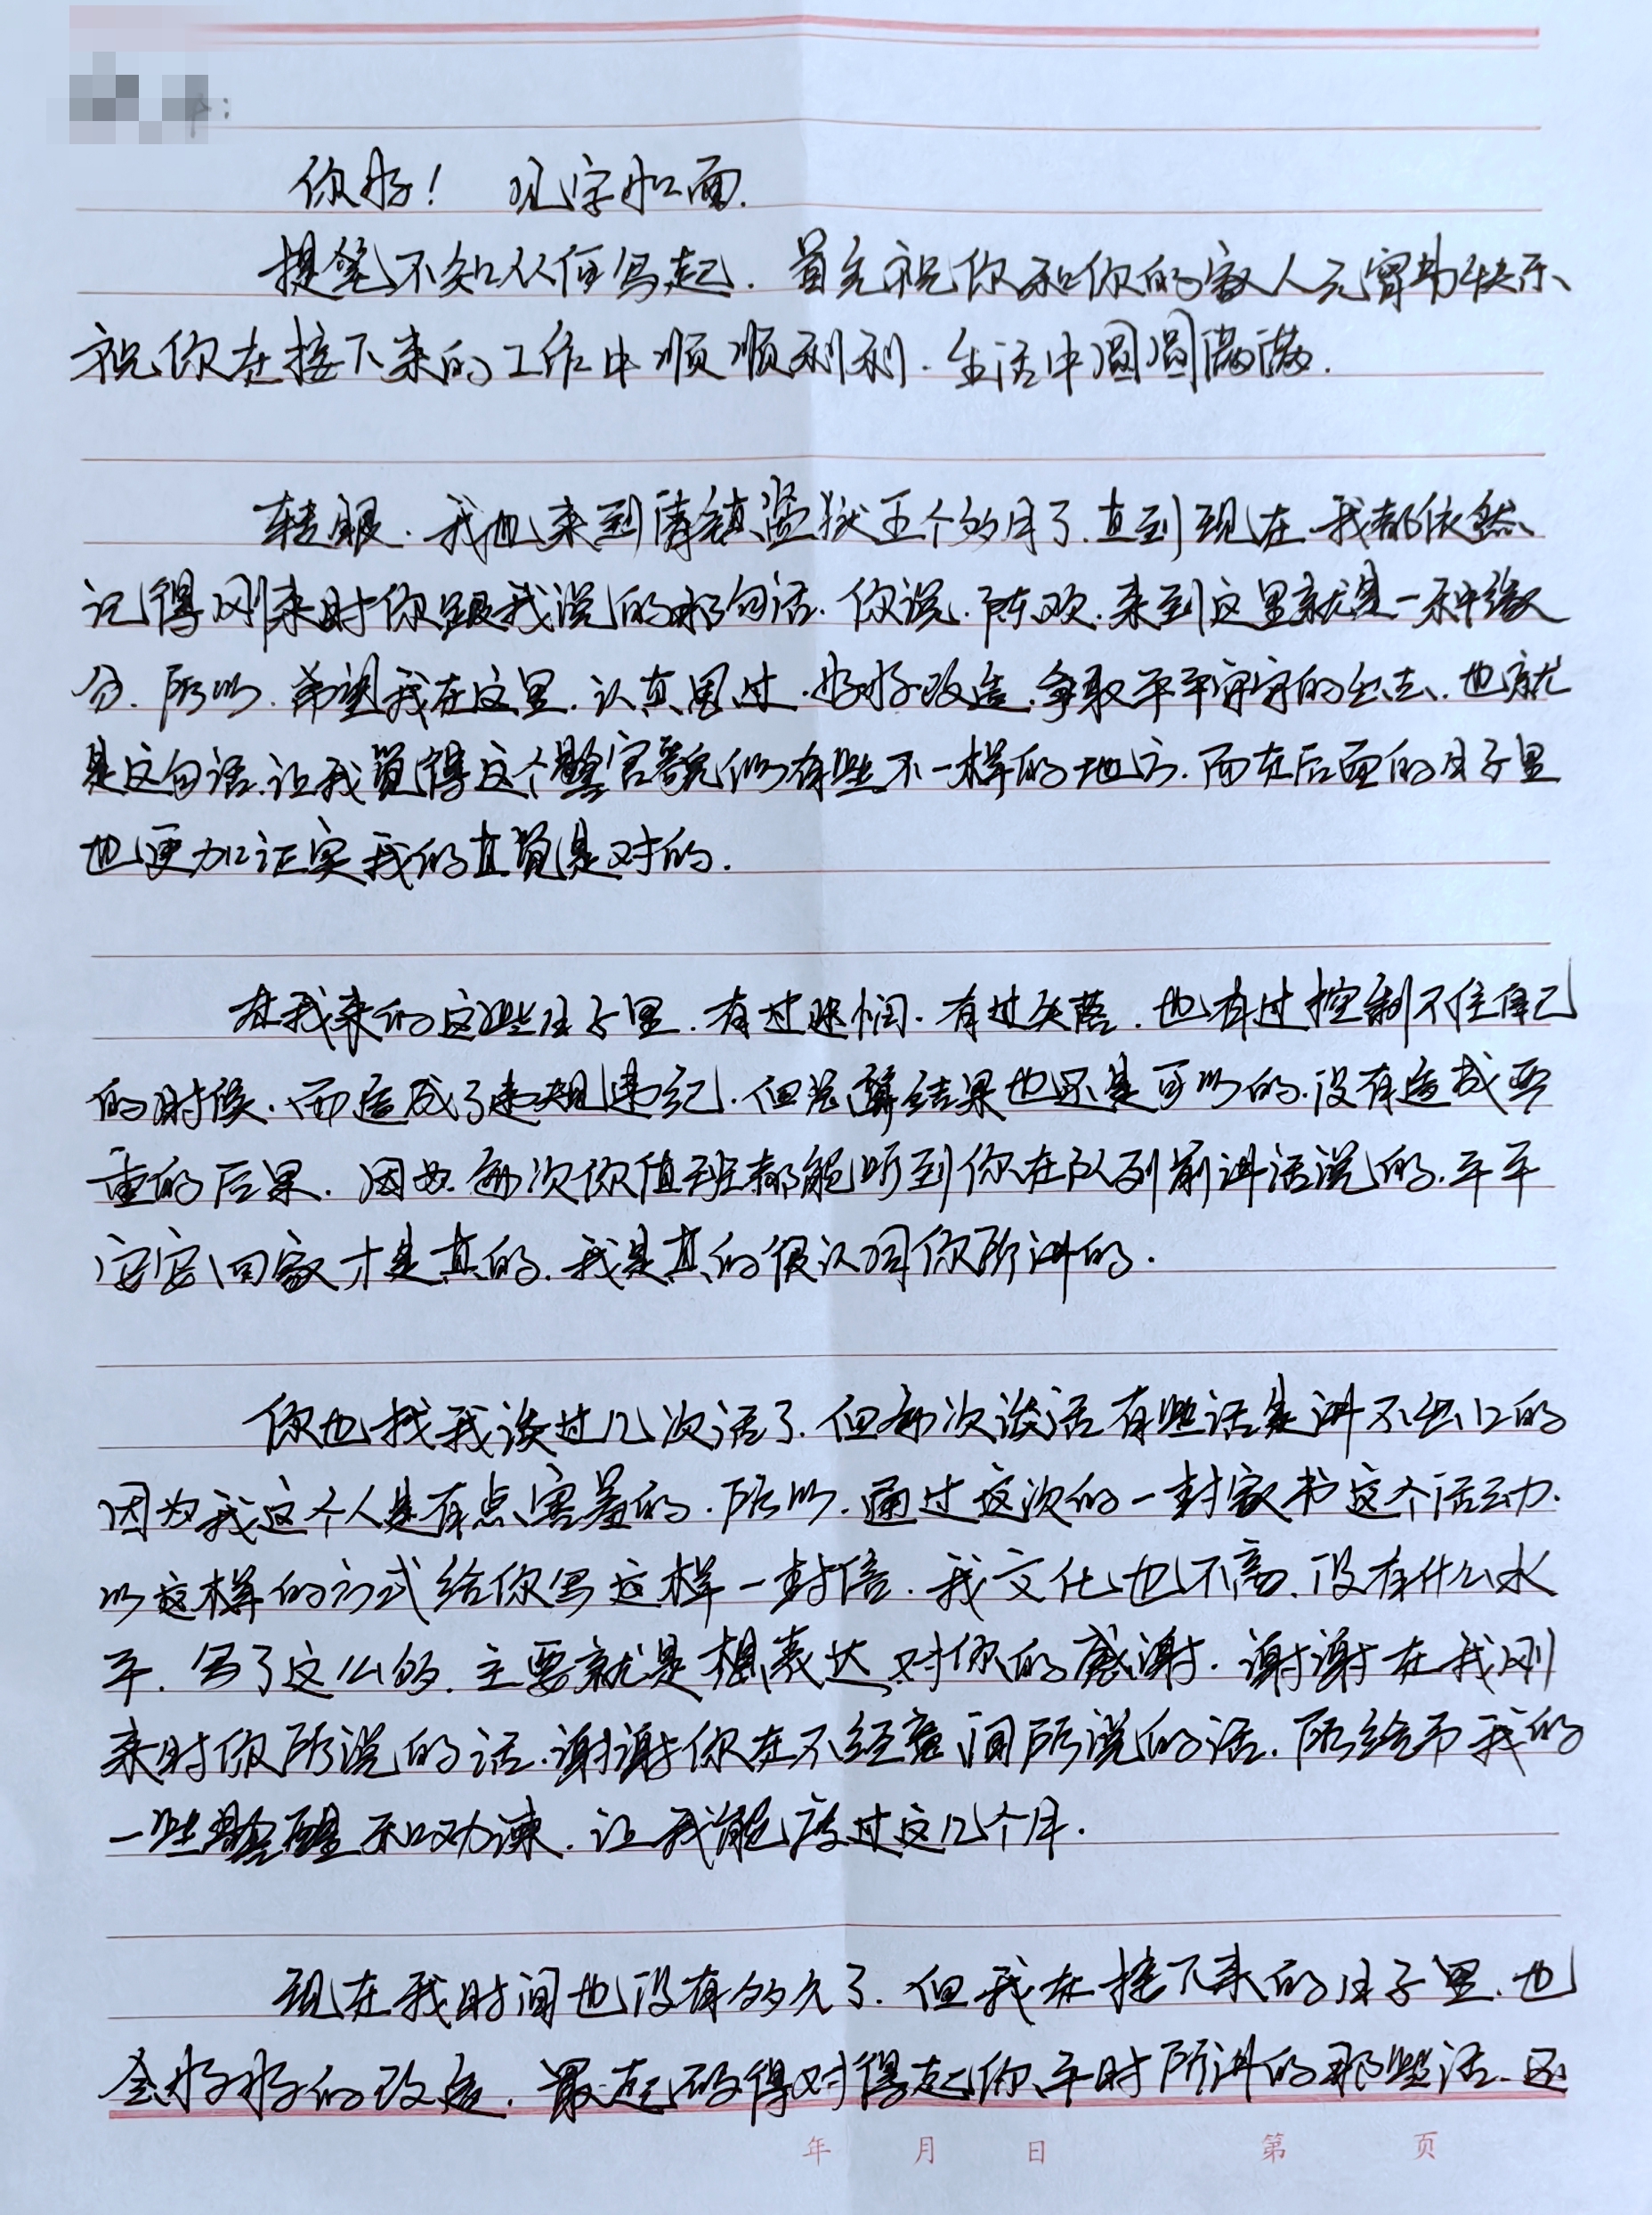 你好！ 见字如面.
提笔不知从何写起. 首先祝你和你的家人元宵节快乐、
祝你在接下来的工作中顺顺利利. 生活中圆圆满满.
转眼. 我也来到清镇监狱五个多月了. 直到现在. 我都依然
记得刚来时你跟我说的那句话. 你说. 陈欢. 来到这里就是一种缘
分. 所以. 希望我在这里. 认真思过. 好好改造. 争取平平安安的出去. 也就
是这句话. 让我觉得这个警官貌似有些不一样的地方. 而在后面的日子里
也更加证实我的直觉是对的.
在我来的这些日子里. 有过迷惘. 有过失落. 也有过控制不住自己
的时候. 而造成了违规违纪. 但总算结果也还是可以的. 没有造成严
重的后果. 因为每次你值班都能听到你在队列前讲话说的. 平平
安安回家才是真的. 我是真的很认同你所讲的.
你也找我谈过几次话了. 但每次谈话有些话是讲不出口的
因为我这个人是有点害羞的. 所以. 通过这次的一封家书这个活动.
以这样的方式给你写这样一封信. 我文化也不高. 没有什么水
平. 写了这么多. 主要就是想表达对你的感谢. 谢谢在我刚
来时你所说的话. 谢谢你在不经意间所说的话. 所给予我的
一些警醒和劝谏. 让我能度过这几个月.
现在我时间也没有多久了. 但我在接下来的日子里. 也
会好好的改造. 最起码得对得起你平时所讲的那些话. 还
年 月 日 第 页